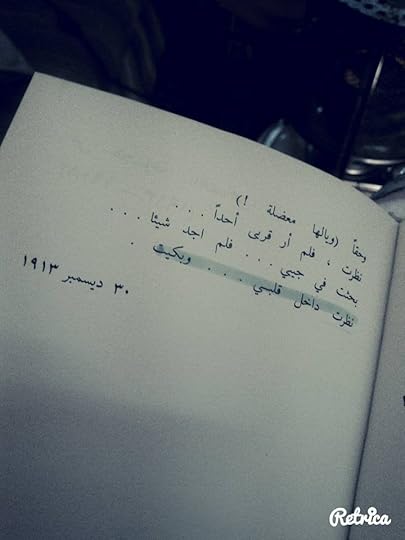 وحقاً (ويالها معضلة !)
نظرت ، فلم أر قربى أحداً . . .
بحثت في جيبي . . . فلم اجد شيئا . . .
نظرت داخل قلبي . . . وبكيت .
٣٠ ديسمبر ١٩١٣
Retrica